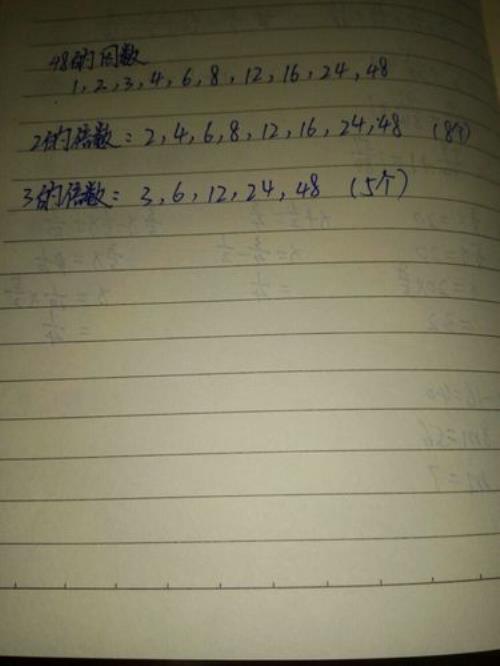 48的因数
1, 2, 3, 4, 6, 8, 12, 16, 24, 48
2的倍数: 2, 4, 6, 8, 12, 16, 24, 48 (8个)
3的倍数: 3, 6, 12, 24, 48 (5个)